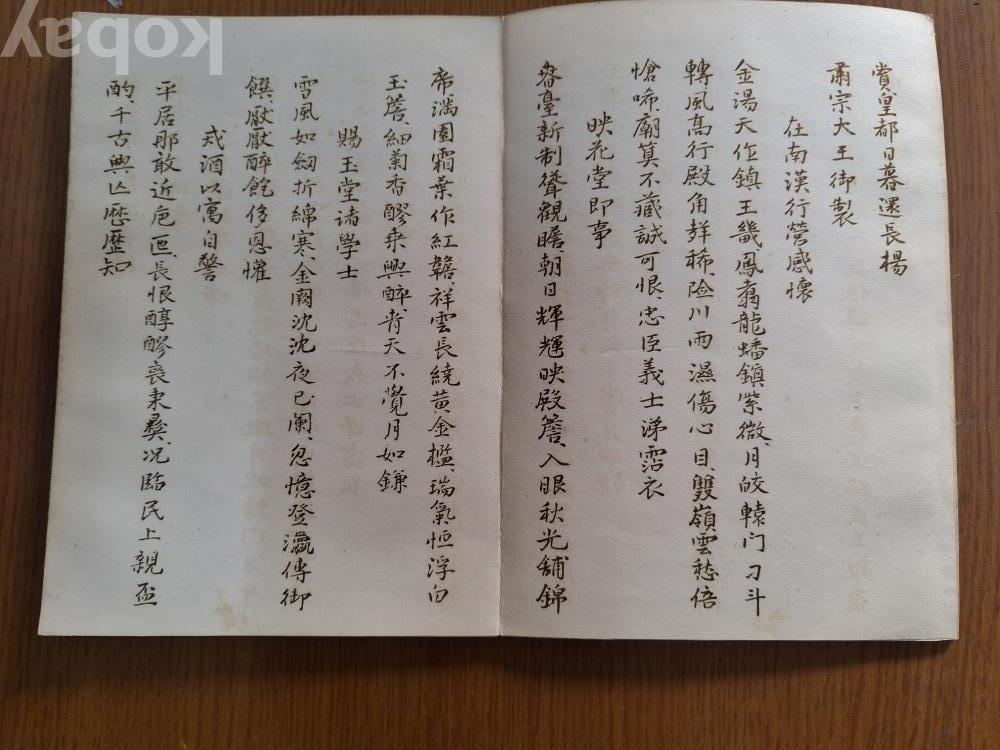 賞皇都日暮還長楊
肅宗大王御製
在南漢行營感懷
金湯天作鎮王畿鳳翥龍蟠鎮紫微月皎轅门刁斗
轉風高行殿角觧稀險川雨濕傷心目雙嶺雲愁倍
愴唏廟算不臧誠可恨忠臣義士涕霑衣
映花堂即事
春臺新制聳觀瞻朝日輝輝映殿簷入眼秋光舖錦
帝滿園霜葉作紅幨祥雲長繞黃金檻瑞氣恒浮白
玉簷細菊香醪乘興醉青天不覺月如鎌
賜玉堂诸學士
雪風如劒折綿寒金闕沈沈夜已闌忽憶登瀛傳御
饌厭厭醉飽侈恩懽
戒酒以寓自警
平居那敢近巵匜長恨醇醪喪秉彜况臨民上親盃
酌千古興亾歷歷知
kobay